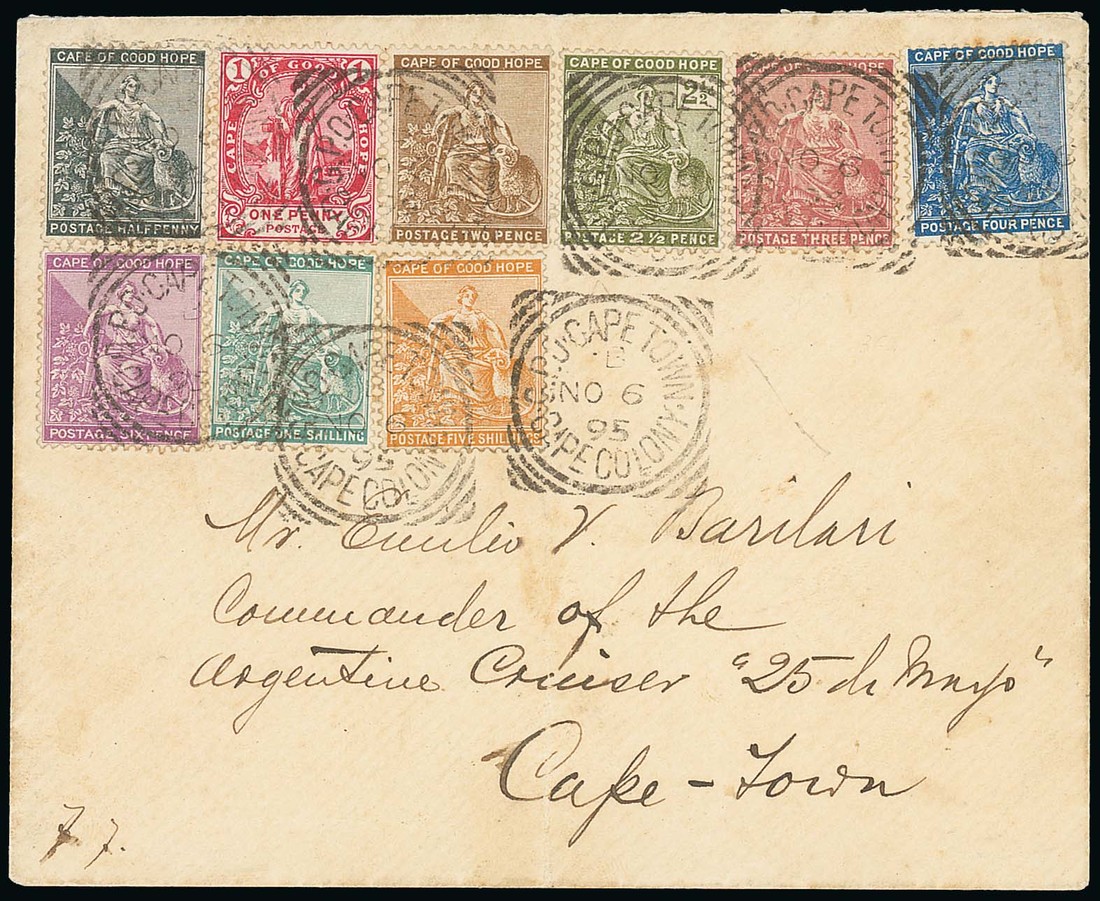 CAPE OF GOOD HOPE
POSTAGE HALFPENNY
1 1
CAPE OF GOOD HOPE
ONE PENNY
POSTAGE
CAPE OF GOOD HOPE
POSTAGE TWO PENCE
CAPE OF GOOD HOPE
2½
POSTAGE 2½ PENCE
CAPE OF GOOD HOPE
POSTAGE THREE PENCE
CAPE OF GOOD HOPE
POSTAGE FOUR PENCE
CAPE OF GOOD HOPE
POSTAGE SIX PENCE
CAPE OF GOOD HOPE
POSTAGE ONE SHILLING
CAPE OF GOOD HOPE
POSTAGE FIVE SHILLINGS
NO 6
95
CAPE COLONY
G.P.O. CAPE TOWN
B
NO 6
95
CAPE COLONY
Mr. Emilio V. Barilari
Commander of the
Argentine Cruiser "25 de Mayo"
Cape-Town